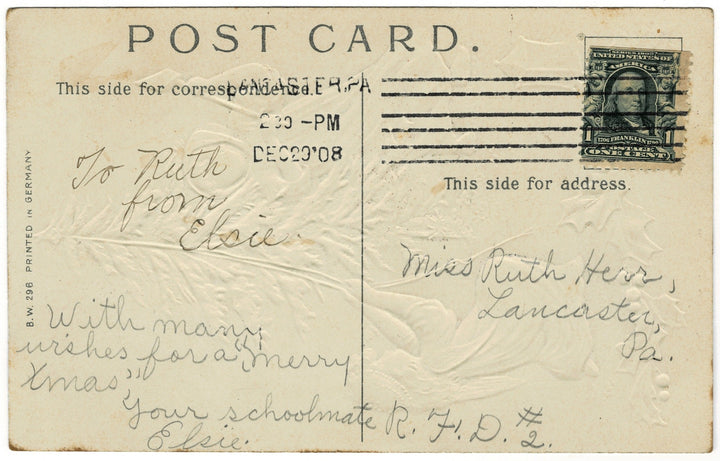 POST CARD.
This side for correspondence.
LANCASTER, PA
2 30 -PM
DEC 20 '08
SERIES 1902
UNITED STATES OF
AMERICA
1706 FRANKLIN 1790
1 POSTAGE 1
ONE CENT
This side for address.
B. W. 296 PRINTED IN GERMANY
To Ruth
from
Elsie.
With many
wishes for a "Merry
Xmas"
Your schoolmate
Elsie.
Miss Ruth Herr,
Lancaster,
Pa.
R. F. D. #2.